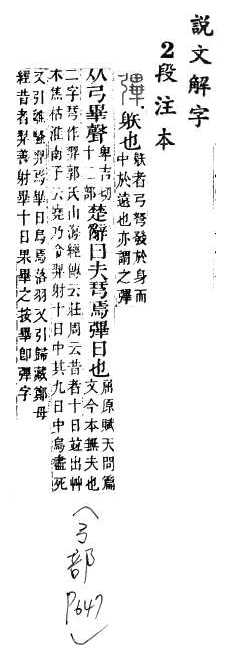 說文解字
2段注本
彃.䠶也 䠶者弓弩發於身而
中於遠也亦謂之彃
从弓畢聲 卑吉切
十二部 楚辭曰夫𢏗焉彃日也 屈原賦天問篇
文今本無夫也
二字𢏗作羿郭氏山海經傳云莊周云昔者十日竝出艸
木焦枯淮南子云堯乃令羿射十日中其九日中烏盡死
又引離騷羿焉畢日烏焉落羽又引歸藏鄭母
經昔者羿善射畢十日果畢之按畢即彃字
(弓部 P647)